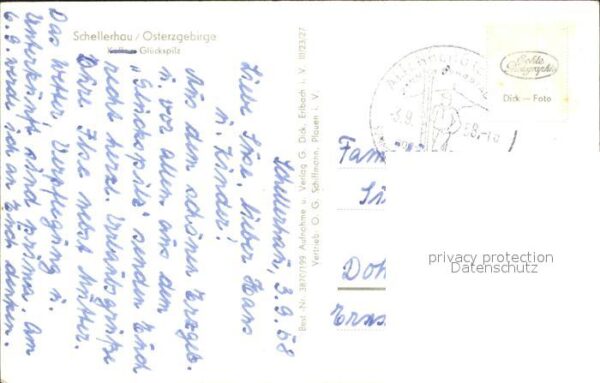 Schellerhau / Osterzgebirge
Glückspilz
Schellerhau, 3.9.68
Liebe Ilse, lieber Hans
u. Kinder!
Aus dem schönen Erzgeb.
u. vor allem aus dem
„Glückspilz“ senden Euch
recht herzl. Urlaubsgrüße
Eure Ilse nebst Mutter.
Das Wetter, Verpflegung u.
Unterkunft sind prima. Am
6.9. werde ich an Euch denken.
Best.-Nr. 3870/199 Aufnahme u. Verlag G. Dick, Erlbach i. V. III/23/27
Vertrieb: O. G. Schiffmann, Plauen i. V.
Echte
Photographie
Dick — Foto
Fam
Doh
privacy protection
Datenschutz